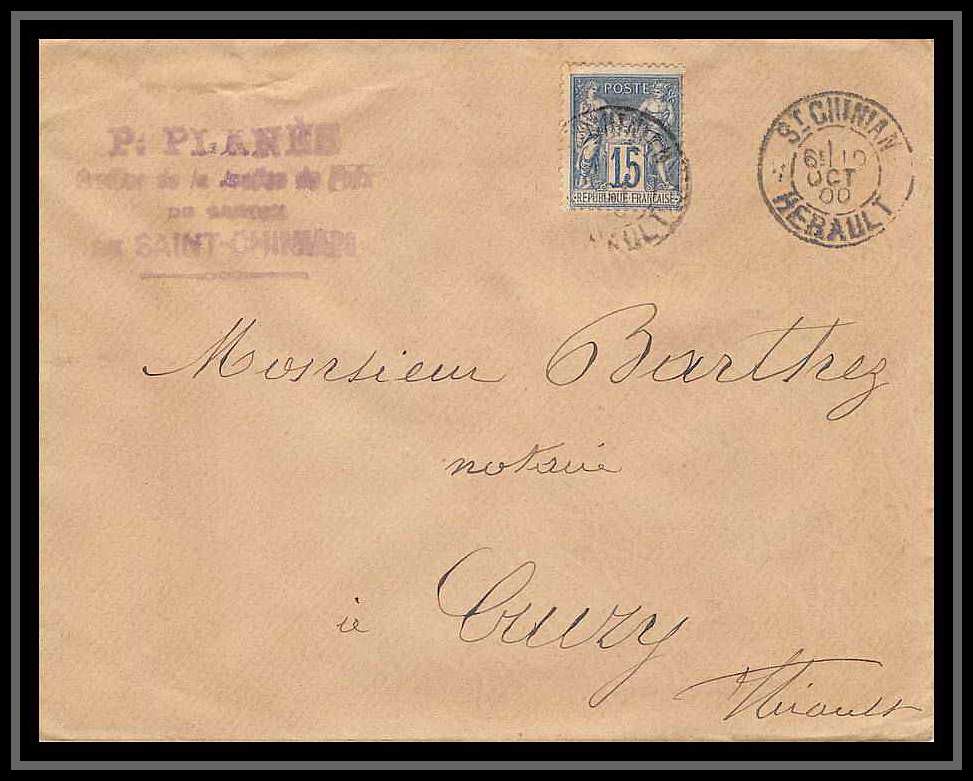 P. PLANÈS
Greffier de la Justice de Paix
DU CANTON
de SAINT-CHINIAN
POSTE
15
REPUBLIQUE FRANÇAISE
ST CHINIAN
10
OCT
00
HERAULT
Monsieur Barthez
notaire
à Cruzy
Hérault